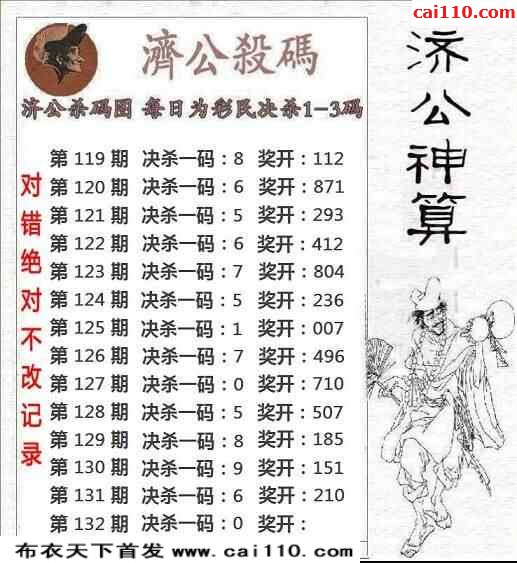 cai110.com
濟公殺碼
济公杀码图 每日为彩民决杀1-3码
对错绝对不改记录
第 119 期 决杀一码:8 奖开:112
第 120 期 决杀一码:6 奖开:871
第 121 期 决杀一码:5 奖开:293
第 122 期 决杀一码:6 奖开:412
第 123 期 决杀一码:7 奖开:804
第 124 期 决杀一码:5 奖开:236
第 125 期 决杀一码:1 奖开:007
第 126 期 决杀一码:7 奖开:496
第 127 期 决杀一码:0 奖开:710
第 128 期 决杀一码:5 奖开:507
第 129 期 决杀一码:8 奖开:185
第 130 期 决杀一码:9 奖开:151
第 131 期 决杀一码:6 奖开:210
第 132 期 决杀一码:0 奖开:
济公神算
布衣天下首发 www.cai110.com